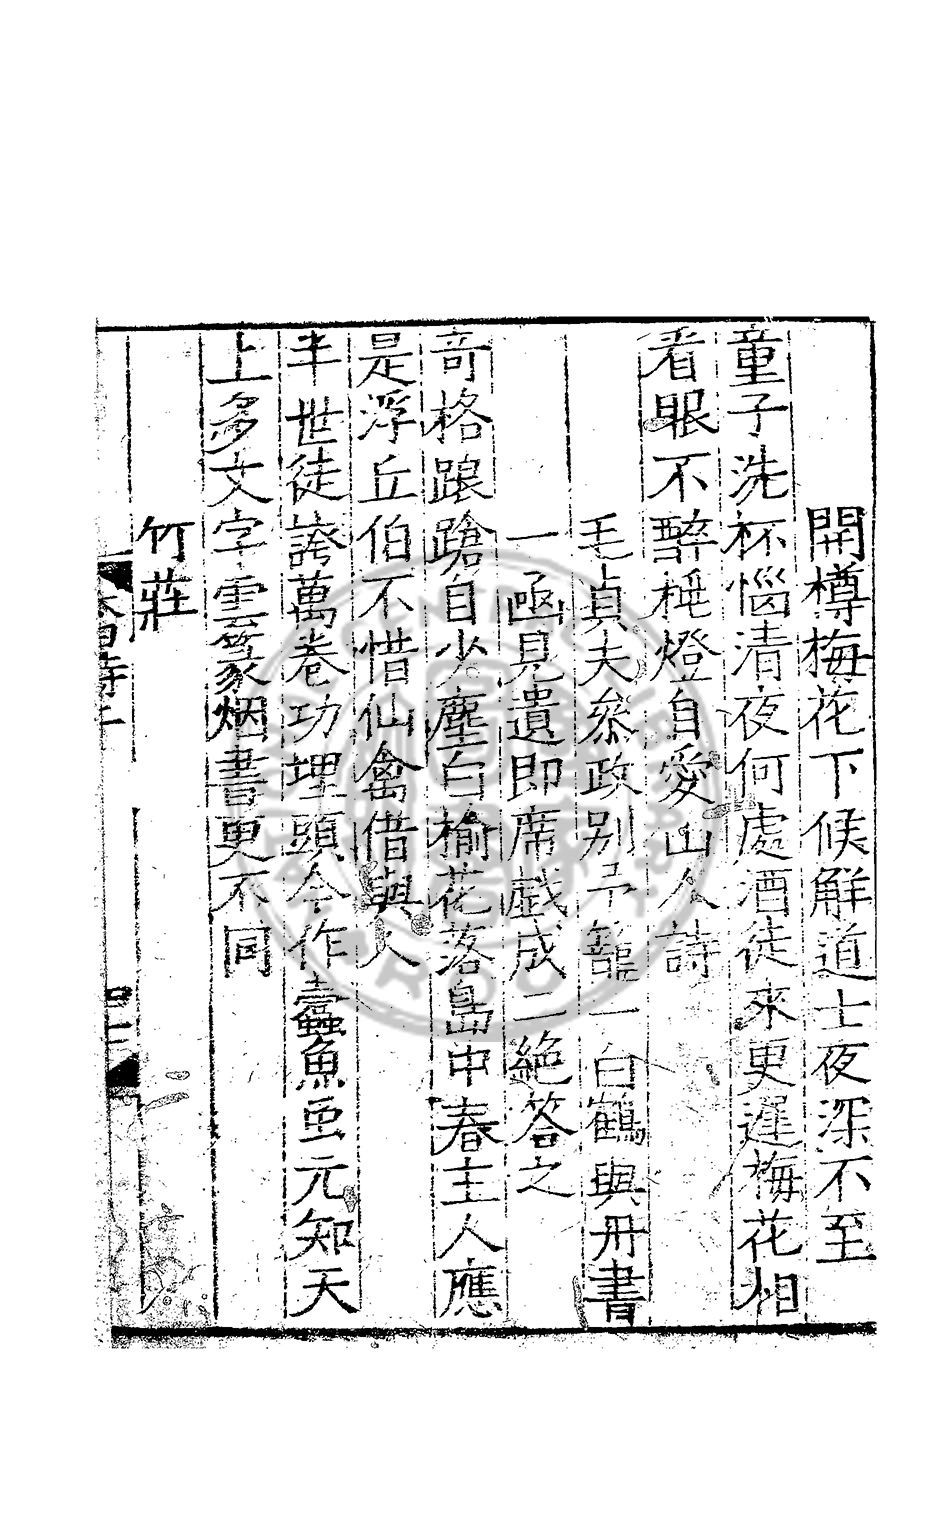 開樽梅花下候解道士夜深不至
童子洗杯惱清夜何處酒徒來更遲梅花相
看眼不醉秪燈自愛山人詩
毛貞夫叅政别予籠一白鶴與丹書
一凾見遺即席戱成二絶答之
竒格踉蹌自少塵白榆花落島中春主人應
是浮丘伯不惜仙禽借與人
半世徒誇萬卷功埋頭今作蠹魚虫元知天
上多文字雲篆烟書更不同
竹莊